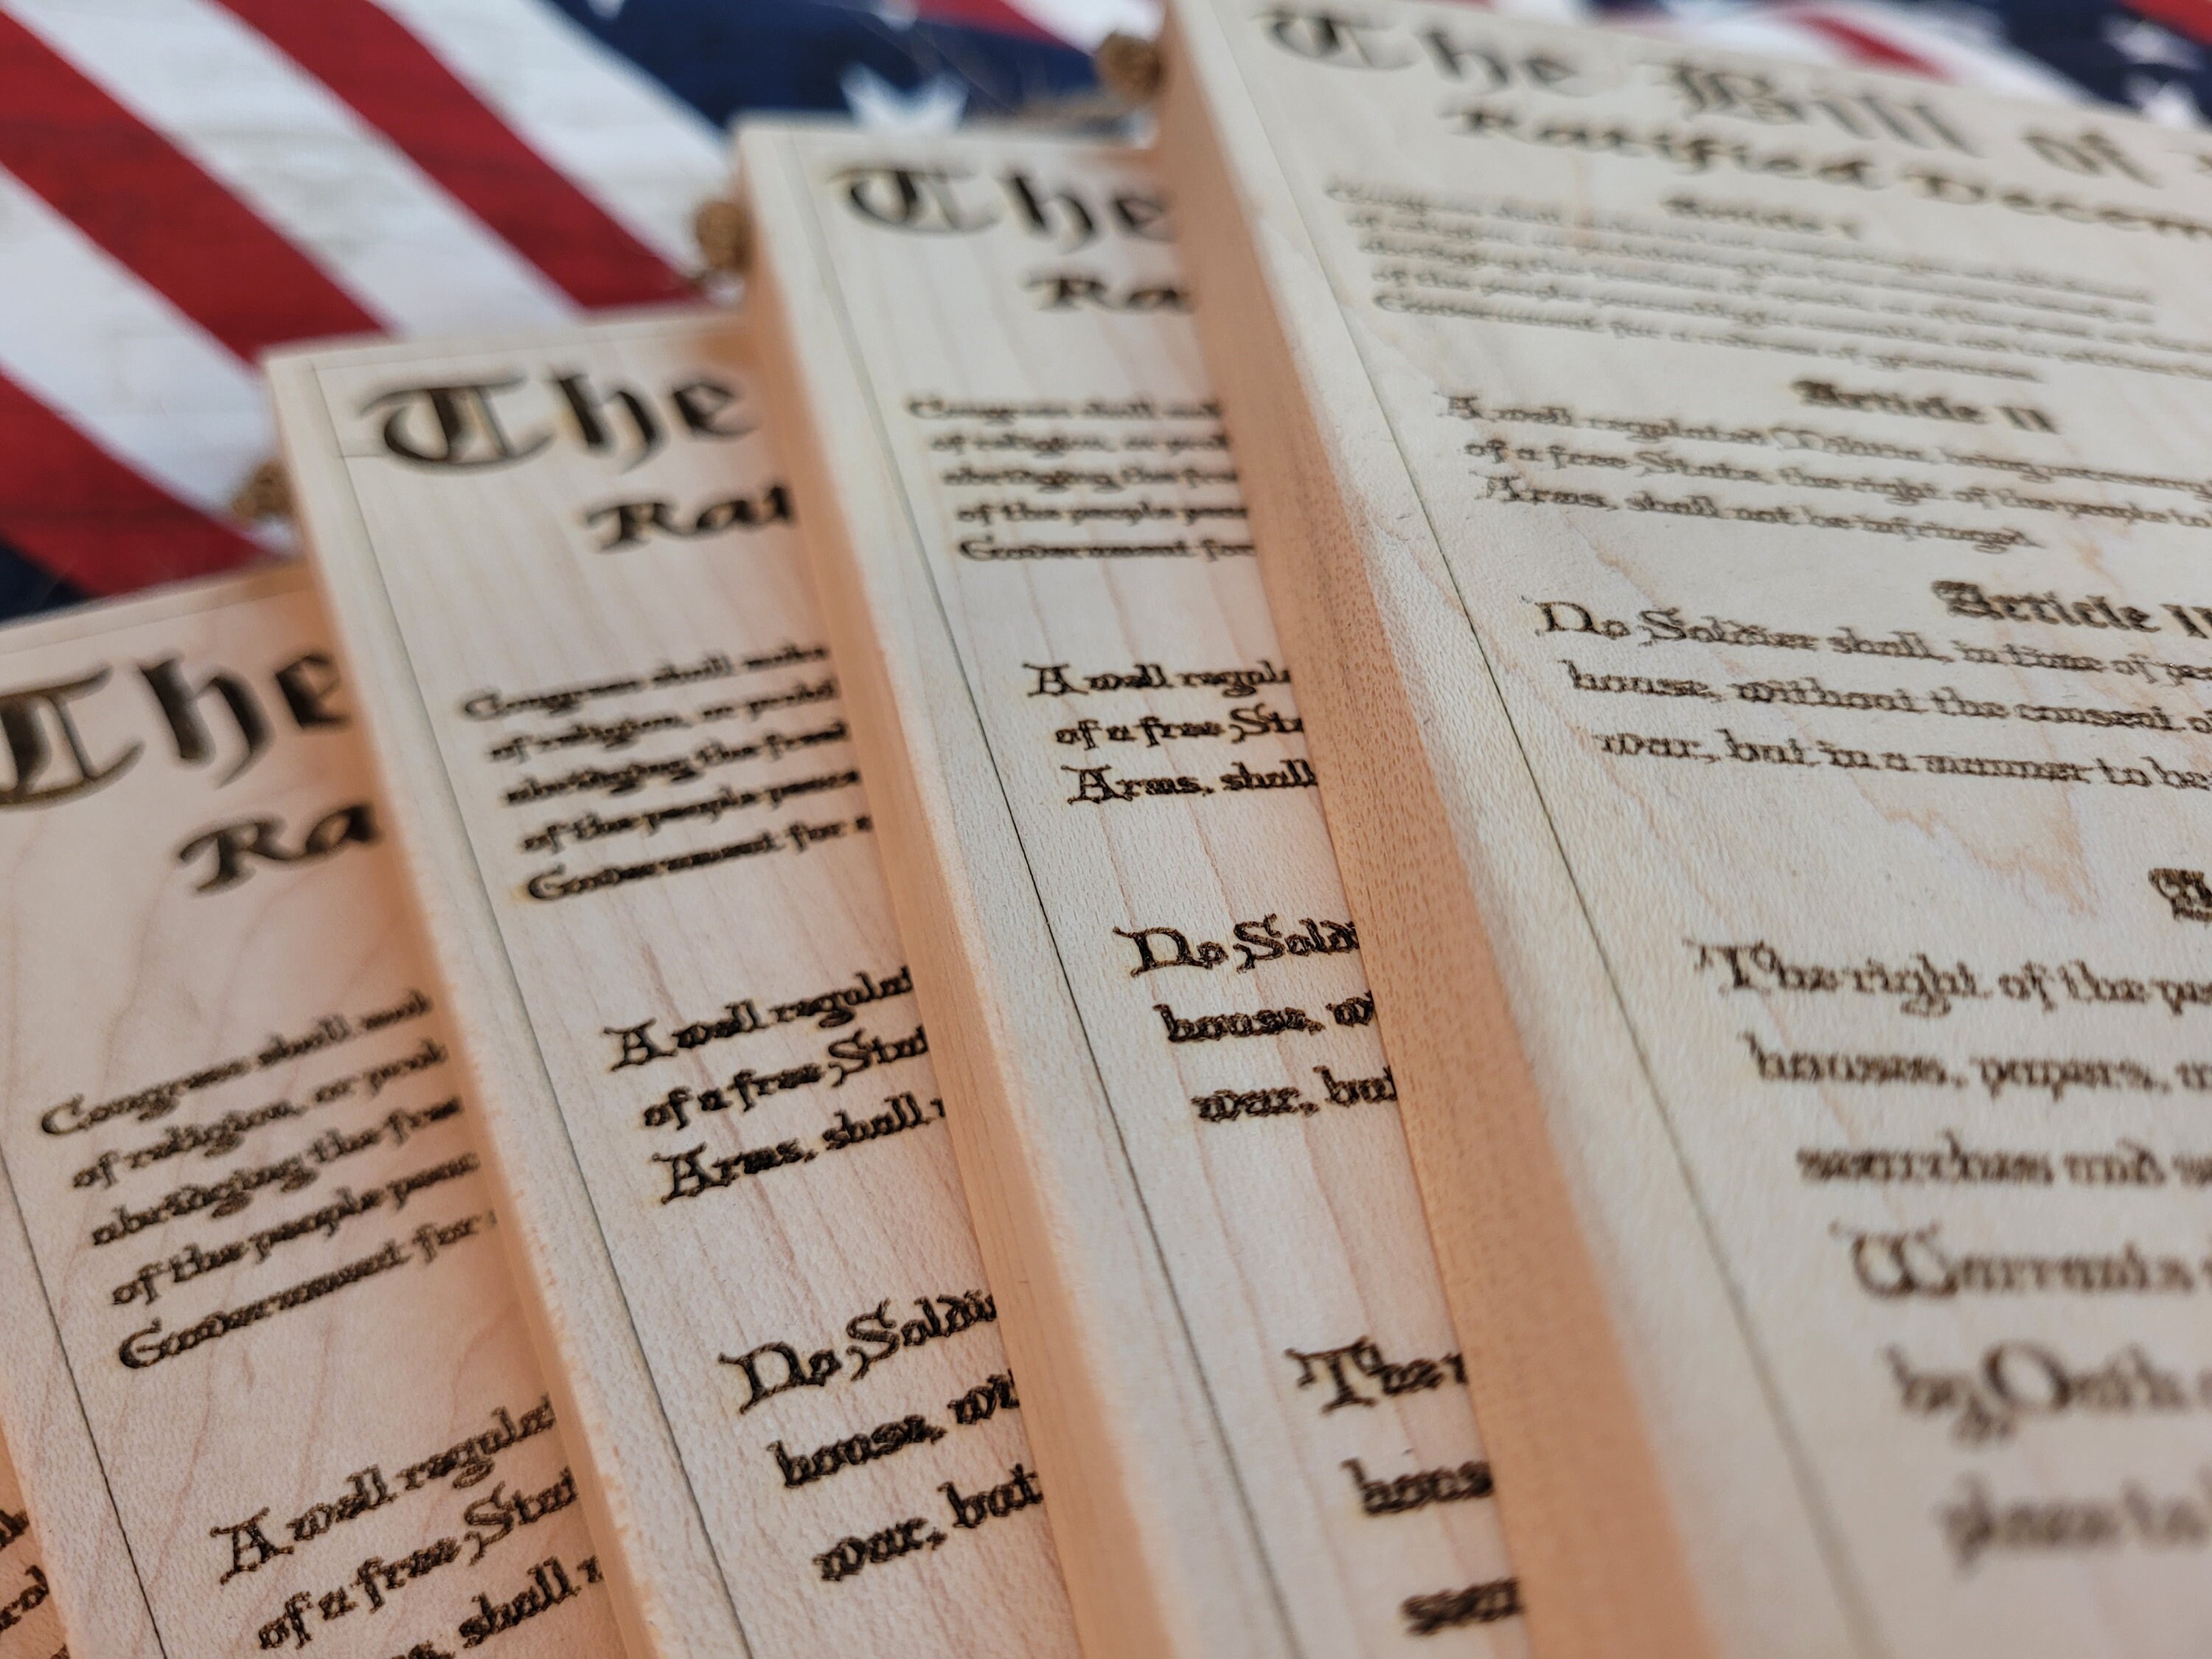 The Bill of
Ratified Decem
Article I
Article II
A well regulated Militia, being necessary
of a free State, the right of the people to
Arms, shall not be infringed.
Article II
No Soldier shall, in time of pea
house, without the consent o
war, but in a manner to be
The right of the pe
houses, papers,
searches and se
Warrants
by Oath
The
Ra
Congress shall mak
of religion, or proh
abridging the free
of the people peac
Government for
A well regula
of a free Sta
Arms, shall
No Soldi
house, wi
war, but
The r
hous
sear
The
Rat
Congress shall make
of religion, or prohi
abridging the freed
of the people peace
Government for a
A well regulat
of a free Stat
Arms, shall n
No Soldie
house, wit
war, but
The
Ra
Congress shall mak
of religion, or proh
abridging the free
of the people peac
Government for
A well regulat
of a free Stat
s, shall n